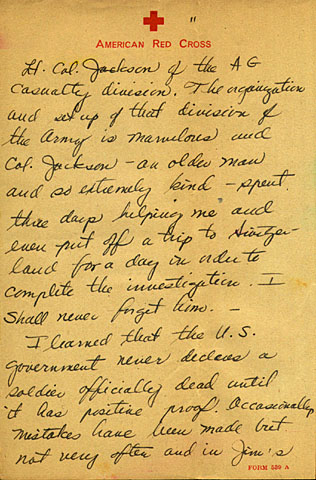 "
AMERICAN RED CROSS
Lt. Col. Jackson of the AG
Casualty division. The organization
and set up of that division of
the Army is marvelous and
Col. Jackson - an older man
and so extremely kind - spent
three days helping me and
even put off a trip to Switzer-
land for a day in order to
complete the investigation. I
shall never forget him. -
I learned that the U.S.
government never declares a
soldier officially dead until
it has positive proof. Occasionally
mistakes have been made but
not very often and in Jim's
FORM 539-A